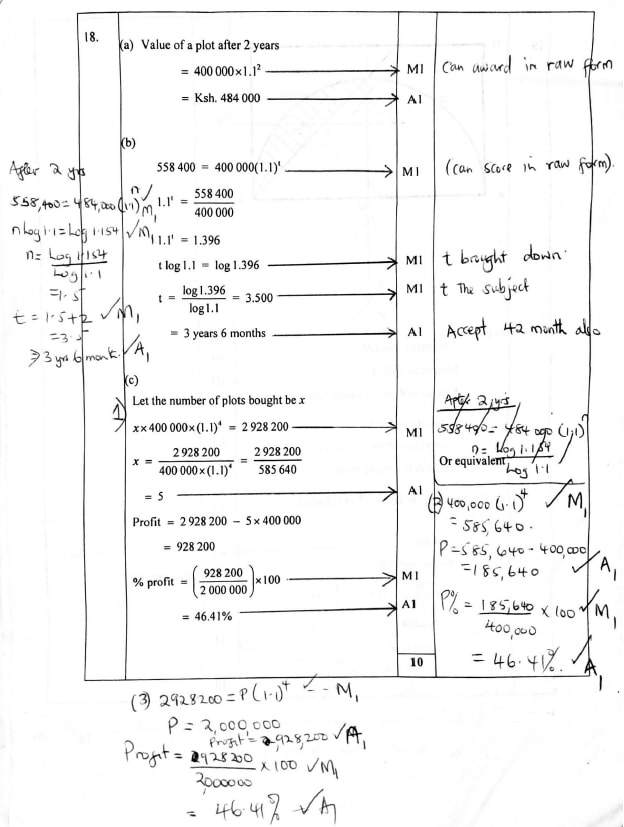 18.
(a) Value of a plot after 2 years
= 400 000×1.1² M1 Can award in raw form
= Ksh. 484 000 A1
(b)
558 400 = 400 000(1.1)ᵗ M1 (can score in raw form).
1.1ᵗ = 558 400 / 400 000
1.1ᵗ = 1.396
t log 1.1 = log 1.396 M1 t brought down
t = log 1.396 / log 1.1 = 3.500 M1 t The subject
= 3 years 6 months A1 Accept 42 month also
After 2 yrs
558,400 = 484,000 (1.1)ⁿ M₁
n log 1.1 = Log 1.154 ✓M₁
n = Log 1.154 / Log 1.1
= 1.5
t = 1.5+2 ✓M₁
= 3.5
⇒ 3 yrs 6 month. ✓A₁
(c)
1)
Let the number of plots bought be x
x×400 000×(1.1)⁴ = 2 928 200 M1
x = 2 928 200 / 400 000×(1.1)⁴ = 2 928 200 / 585 640
= 5 A1
Profit = 2 928 200 − 5×400 000
= 928 200
% profit = (928 200 / 2 000 000)×100 M1
= 46.41% A1
10
After 2 yrs
558400 = 484 000 (1.1)ⁿ
n = Log 1.154 / Log 1.1
Or equivalent
(2) 400,000 (1.1)⁴ ✓M₁
= 585,640.
P = 585,640 - 400,000
= 185,640 ✓A₁
P% = 185,640 / 400,000 × 100 ✓M₁
= 46.41% ✓A₁
(3) 2928200 = P(1.1)⁴ ✓-- M₁
P = 2,000,000
Profit = 928,200 ✓A₁
Profit = 928200 / 2000000 × 100 ✓M₁
= 46.41% ✓A₁